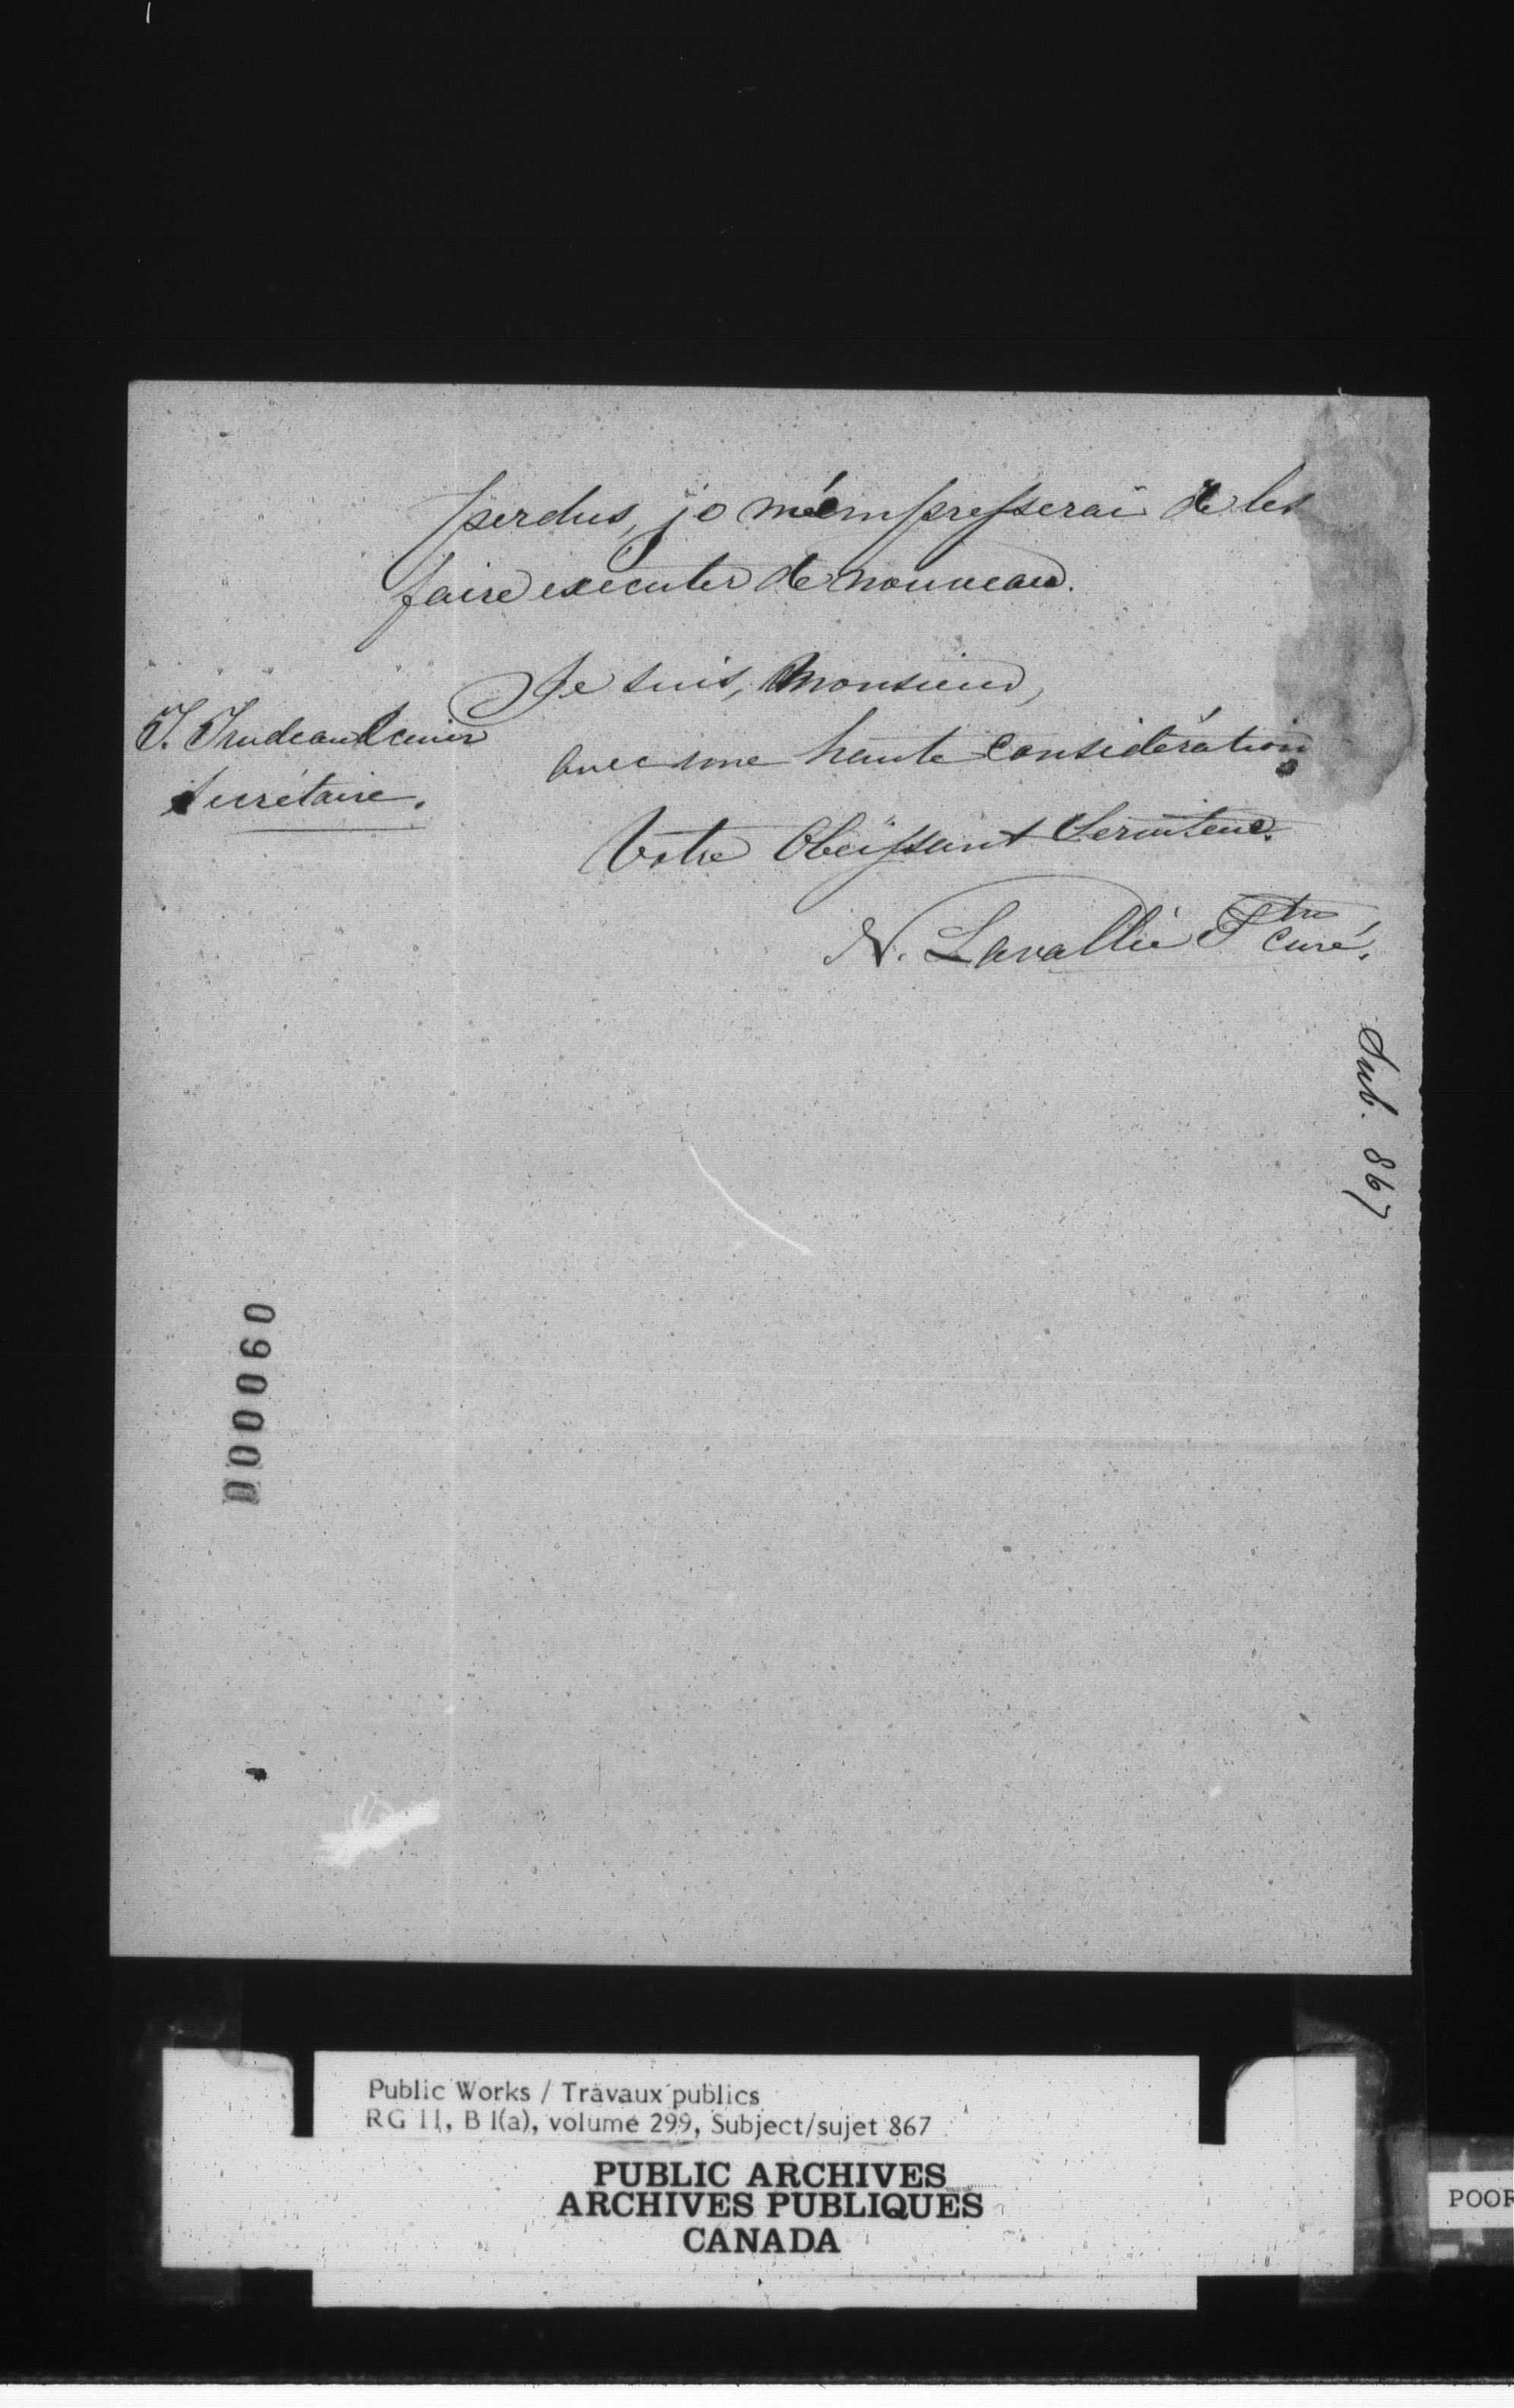 perdus, je m'empresserai de les
faire executer de nouveau.
Je suis, Monsieur,
avec une haute considération
Votre Obeissant Serviteur.
N. Lavallée Ptre Curé.
T. Trudeau Ecuier
Secrétaire.
Sub. 867
000060
Public Works / Travaux publics
RG 11, B 1(a), volume 299, Subject/sujet 867
PUBLIC ARCHIVES
ARCHIVES PUBLIQUES
CANADA
POOR